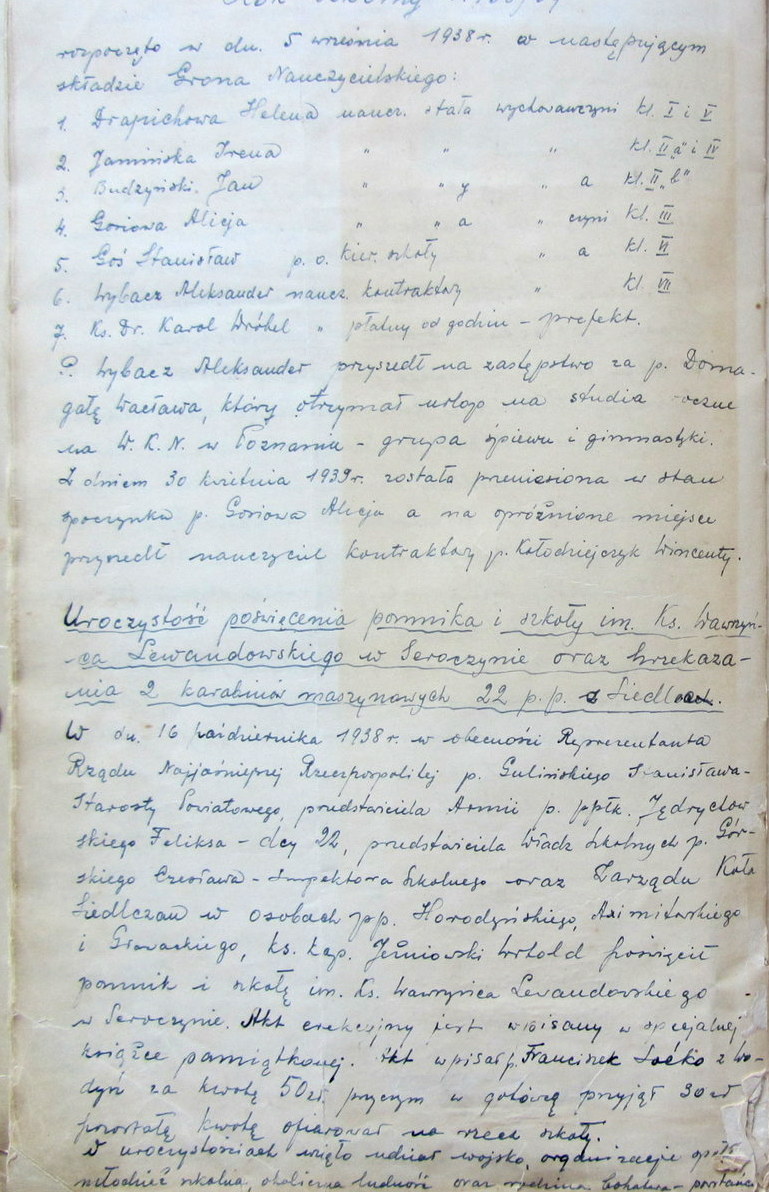 Rok szkolny
rozpoczęto w dn. 5 września 1938 r. w następującym
składzie Grona Nauczycielskiego:
1. Drapichowa Helena naucz. stała wychowawczyni kl. I i V
2. Jamińska Irena " " " kl. II „a” i IV
3. Budzyński Jan " " y " a kl. II „b”
4. Goriowa Alicja " " a " czyni kl. III
5. Goś Stanisław p. o. kier. szkoły " a kl. VI
6. Wybacz Aleksander naucz. kontraktowy " kl. VII
7. Ks. Dr. Karol Wróbel " płatny od godzin - prefekt.
P. Wybacz Aleksander przyszedł na zastępstwo za p. Doma-
gałę Wacława, który otrzymał urlop na studia roczne
na W. K. N. w Poznaniu - grupa śpiewu i gimnastyki.
Z dniem 30 kwietnia 1939 r. została przeniesiona w stan
spoczynku p. Goriowa Alicja a na opróżnione miejsce
przyszedł nauczyciel kontraktowy p. Kołodziejczyk Wincenty.
Uroczystość poświęcenia pomnika i szkoły im. Ks. Wawrzyń-
-ca Lewandowskiego w Seroczynie oraz przekaza-
nia 2 karabinów maszynowych 22 p.p. z Siedlec.
W dn. 16 października 1938 r. w obecności Reprezentanta
Rządu Najjaśniejszej Rzeczpospolitej p. Gulińskiego Stanisława-
Starosty Powiatowego, przedstawiciela Armii p. ppłk. Jędrychow
skiego Feliksa - dcy 22, przedstawiciela Władz Szkolnych p. Gór-
skiego Czesława - Inspektora Szkolnego oraz Zarządu Koła
Siedlczan w osobach pp. Horodyńskiego,
i Growackiego, ks. kap. Witold poświęcił
pomnik i szkołę im. Ks. Wawrzyńca Lewandowskiego
w Seroczynie. Akt erekcyjny jest wpisany w specjalnej
książce pamiątkowej. Akt wpisał p. Franciszek Soćko z Wo-
dyń za kwotę 50 zł. przyczym w gotówce przyjął 30 zł
pozostałą kwotę ofiarował na rzecz szkoły.
W uroczystościach wzięło udział wojsko, organizacje społ.
młodzież szkolna, okoliczna ludność oraz rodzina bohatera - powstańca